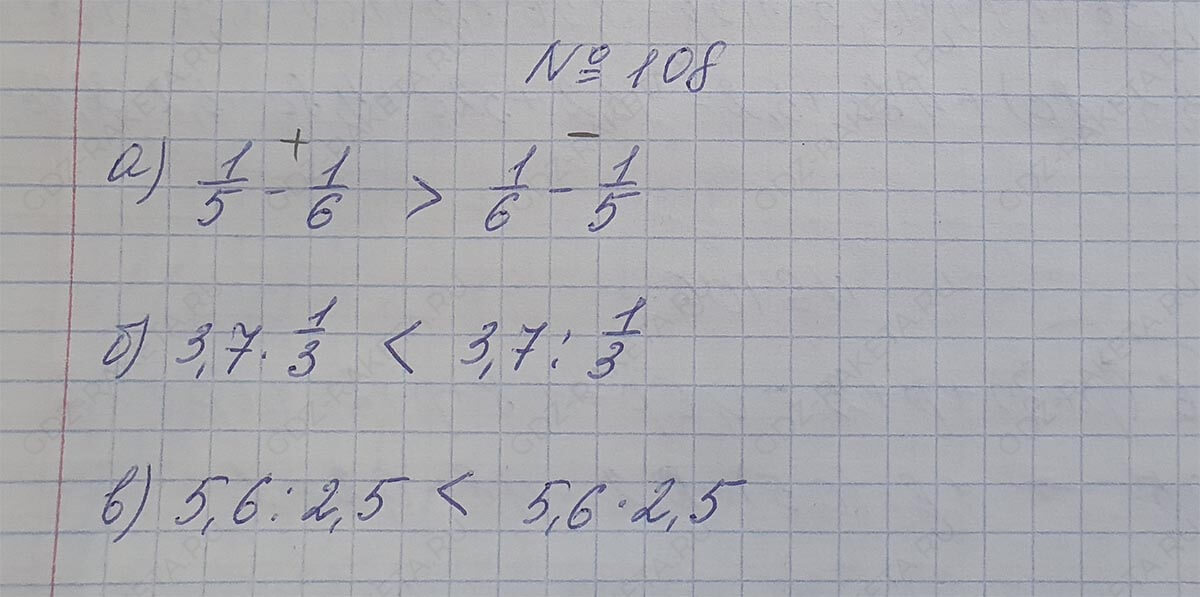 № 108
+ −
а) 1/5 - 1/6 > 1/6 - 1/5
б) 3,7 · 1/3 < 3,7 : 1/3
в) 5,6 : 2,5 < 5,6 · 2,5
GDZ-RAKETA.RU